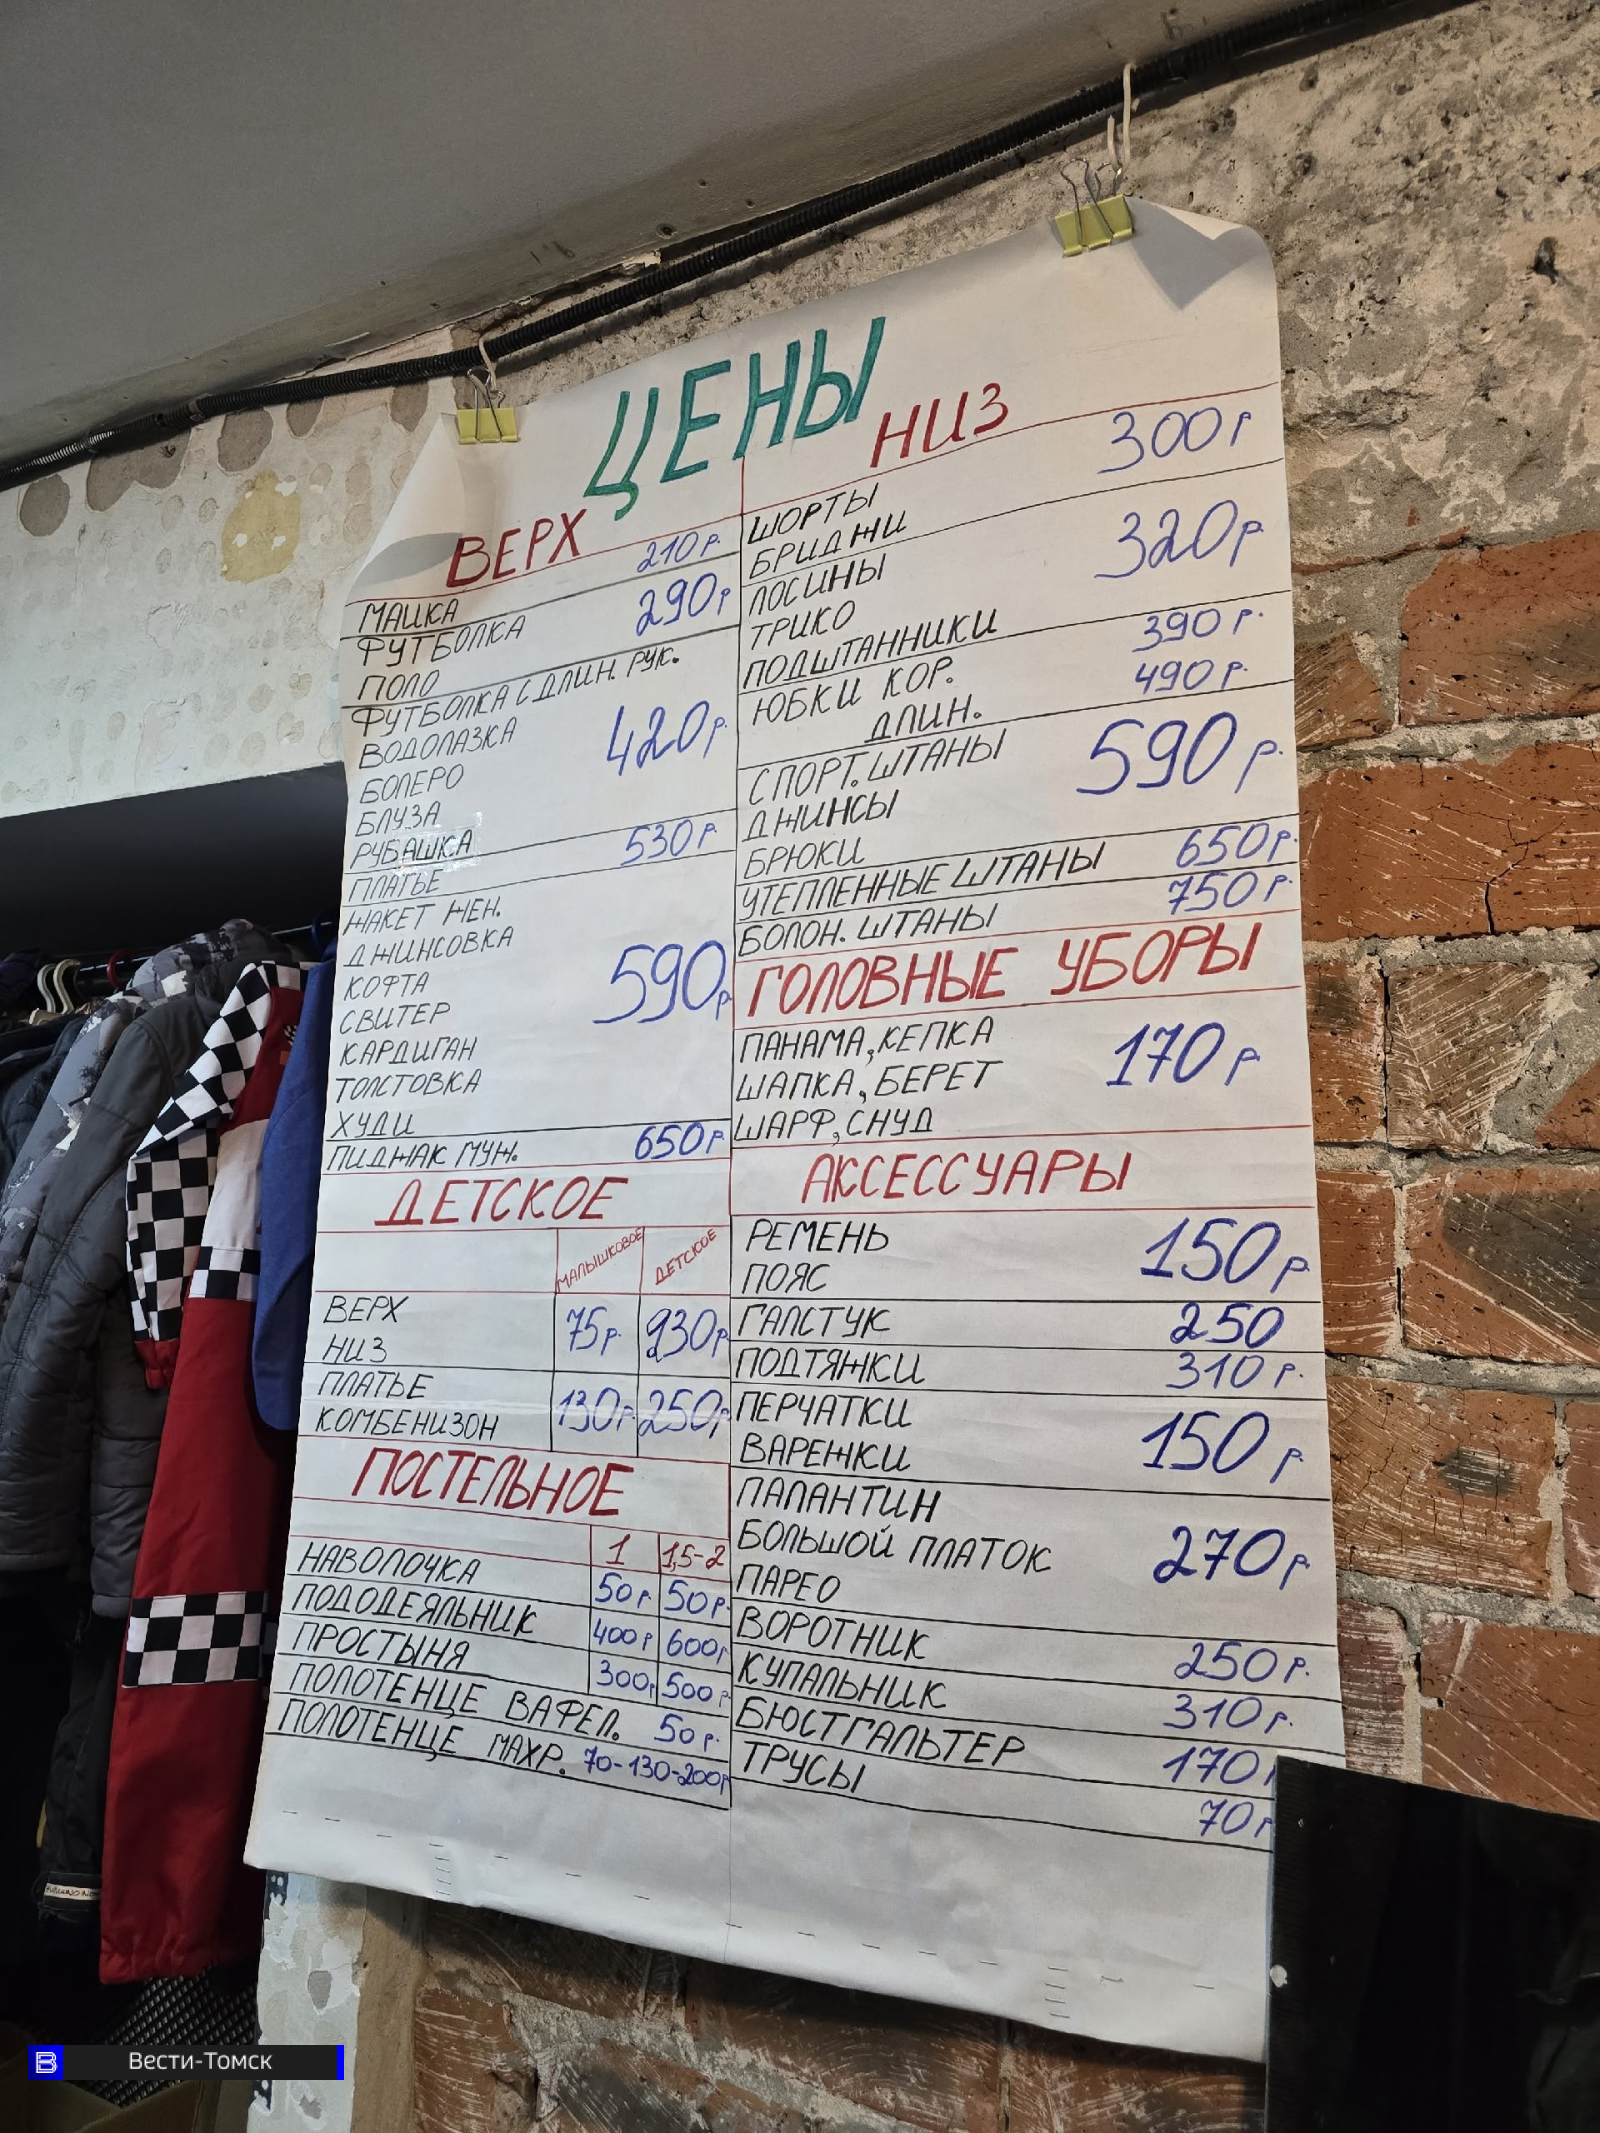 ЦЕНЫ
ВЕРХ
МАЙКА 210 р.
ФУТБОЛКА 290 р
ПОЛО
ФУТБОЛКА С ДЛИН. РУК.
ВОДОЛАЗКА 420 р.
БОЛЕРО
БЛУЗА
РУБАШКА
ПЛАТЬЕ 530 р.
ЖАКЕТ ЖЕН.
ДЖИНСОВКА
КОФТА 590 р
СВИТЕР
КАРДИГАН
ТОЛСТОВКА
ХУДИ
ПИДЖАК МУЖ. 650 р
ДЕТСКОЕ
МАЛЫШКОВОЕ ДЕТСКОЕ
ВЕРХ 75 р. 230 р
НИЗ
ПЛАТЬЕ
КОМБЕНИЗОН 130 р. 250 р
ПОСТЕЛЬНОЕ
1 1,5-2
НАВОЛОЧКА 50 р. 50 р.
ПОДОДЕЯЛЬНИК 400 р 600 р
ПРОСТЫНЯ 300 р 500 р
ПОЛОТЕНЦЕ ВАФЕЛ. 50 р.
ПОЛОТЕНЦЕ МАХР. 70-130-200 р
НИЗ
ШОРТЫ 300 р
БРИДЖИ
ЛОСИНЫ 320 р.
ТРИКО
ПОДШТАННИКИ
ЮБКИ КОР. 390 р.
ДЛИН. 490 р.
СПОРТ. ШТАНЫ
ДЖИНСЫ 590 р.
БРЮКИ
УТЕПЛЕННЫЕ ШТАНЫ 650 р.
БОЛОН. ШТАНЫ 750 р.
ГОЛОВНЫЕ УБОРЫ
ПАНАМА, КЕПКА
ШАПКА, БЕРЕТ 170 р
ШАРФ, СНУД
АКСЕССУАРЫ
РЕМЕНЬ 150 р.
ПОЯС
ГАЛСТУК 250
ПОДТЯЖКИ 310 р.
ПЕРЧАТКИ 150 р.
ВАРЕЖКИ
ПАЛАНТИН
БОЛЬШОЙ ПЛАТОК 270 р
ПАРЕО
ВОРОТНИК 250 р.
КУПАЛЬНИК 310 р.
БЮСТГАЛЬТЕР 170 р
ТРУСЫ 70 р
Вести-Томск